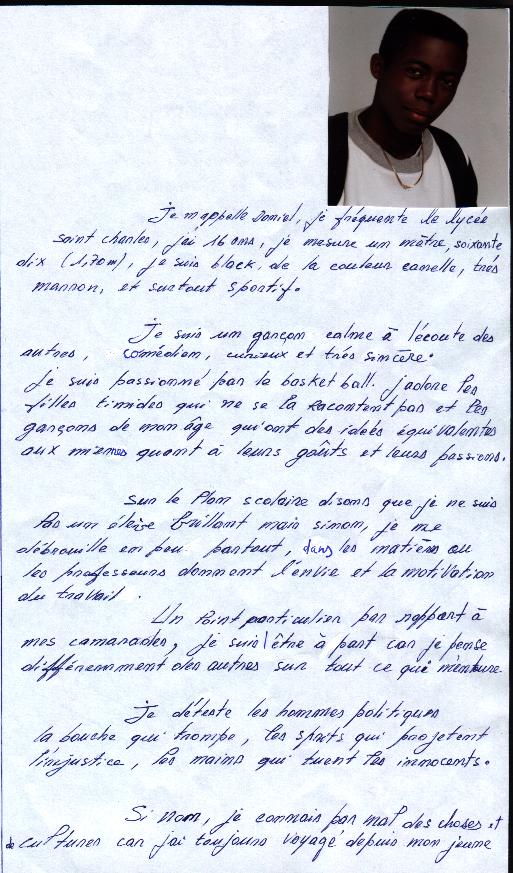 Je m'appelle Daniel, je fréquente le lycée
saint charles, j'ai 16 ans, je mesure un mètre, soixante
dix (1,70m), je suis black, de la couleur canelle, très
marron, et surtout sportif.
Je suis un garçon calme à l'écoute des
autres, comédien, curieux et très sincère.
je suis passionné par le basket ball. j'adore les
filles timides qui ne se la racontent pas et les
garçons de mon âge qui ont des ideés équivalentes
aux miennes quant à leurs goûts et leurs passions.
sur le Plan scolaire disons que je ne suis
Pas un éleve brillant mais sinon, je me
débrouille en peu partout, dans les matières ou
les professeurs donnent l'envie et la motivation
du travail.
Un Point particulier par rapport à
mes camarades, je suis être à part car je pense
différemment des autres sur tout ce qui m'entoure.
Je déteste les hommes politiques
la bouche qui trompe, les qui projetent
l'injustice, les mains qui tuent les innocents.
Si non, je connais pas mal des choses et
de cultures car j'ai toujours voyagé depuis mon jeune